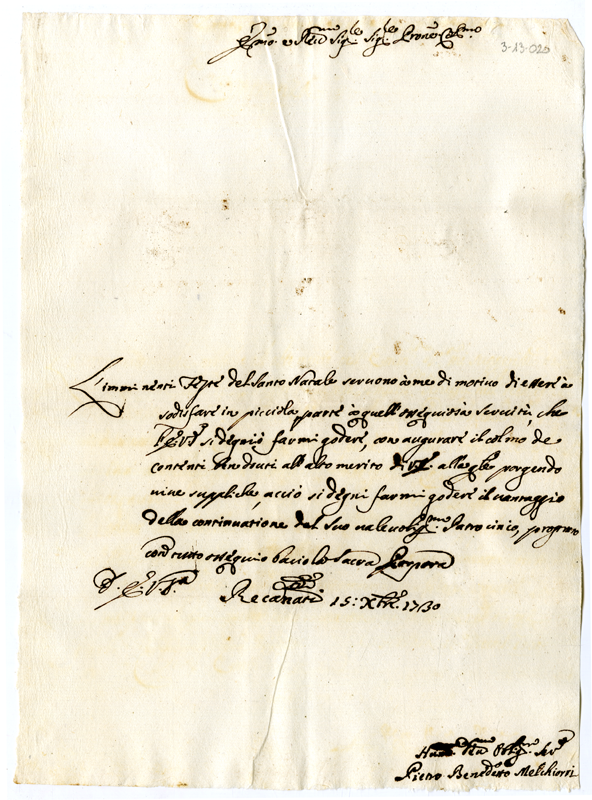 Emo. e Rmo Sigre Sigre Prone Colmo
3-13-020
L'imminenti Feste del Santo Natale seruono à me di motiuo di essere à
sodisfare in picciola parte à quell'ossequiosa seruitù, che
si degnò farmi godere, con augurare il colmo de
contenti douuti all'alto merito di alla qle porgendo
uiue suppliche, acciò si degni farmi godere il uantaggio
della continuatione del Suo Patrocinio,
con tutto ossequio bacio la Sacra Porpora
D. E. V. Ra
Recanati 15: Xbre 1730
Humo Oblmo
Pietro Benedetto Melchiorri